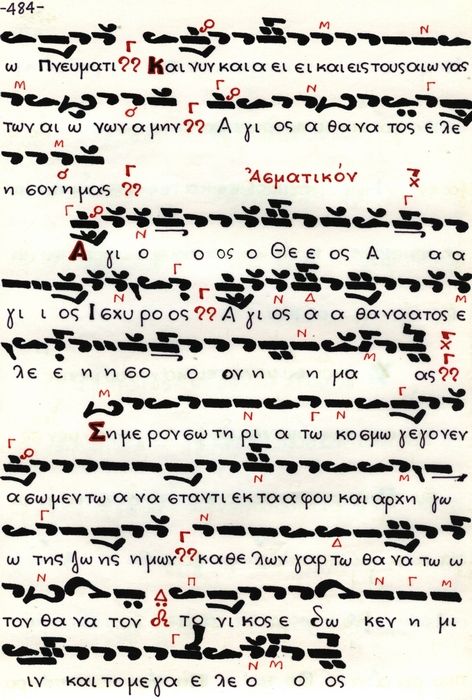 -484-
ω Πνευματι Και νυν και α ει ει και εις τους αι ω νας
των αι ω νων α μην Α γι ος α θα να τος ε λε
η σον η μας
Ἀσματικόν
Α γι ο ο ος ο Θε ε ος Α α α
γι ι ος Ι σχυ ρο ος Α γι ος α α θα να α τος ε
λε ε η η σο ο ο ον η η μα ας
Σημερον σω τη ρι α τω κο σμω γε γο νεν
α σω μεν τω α να σταντι εκ τα α φου και αρχη γω
ω της ζω ης η μων κα θε λων γαρ τω θα να τω ω
τον θα να τον το νι κος ε δω κεν η μι
ιν και το με γα ε λε ο ο ος